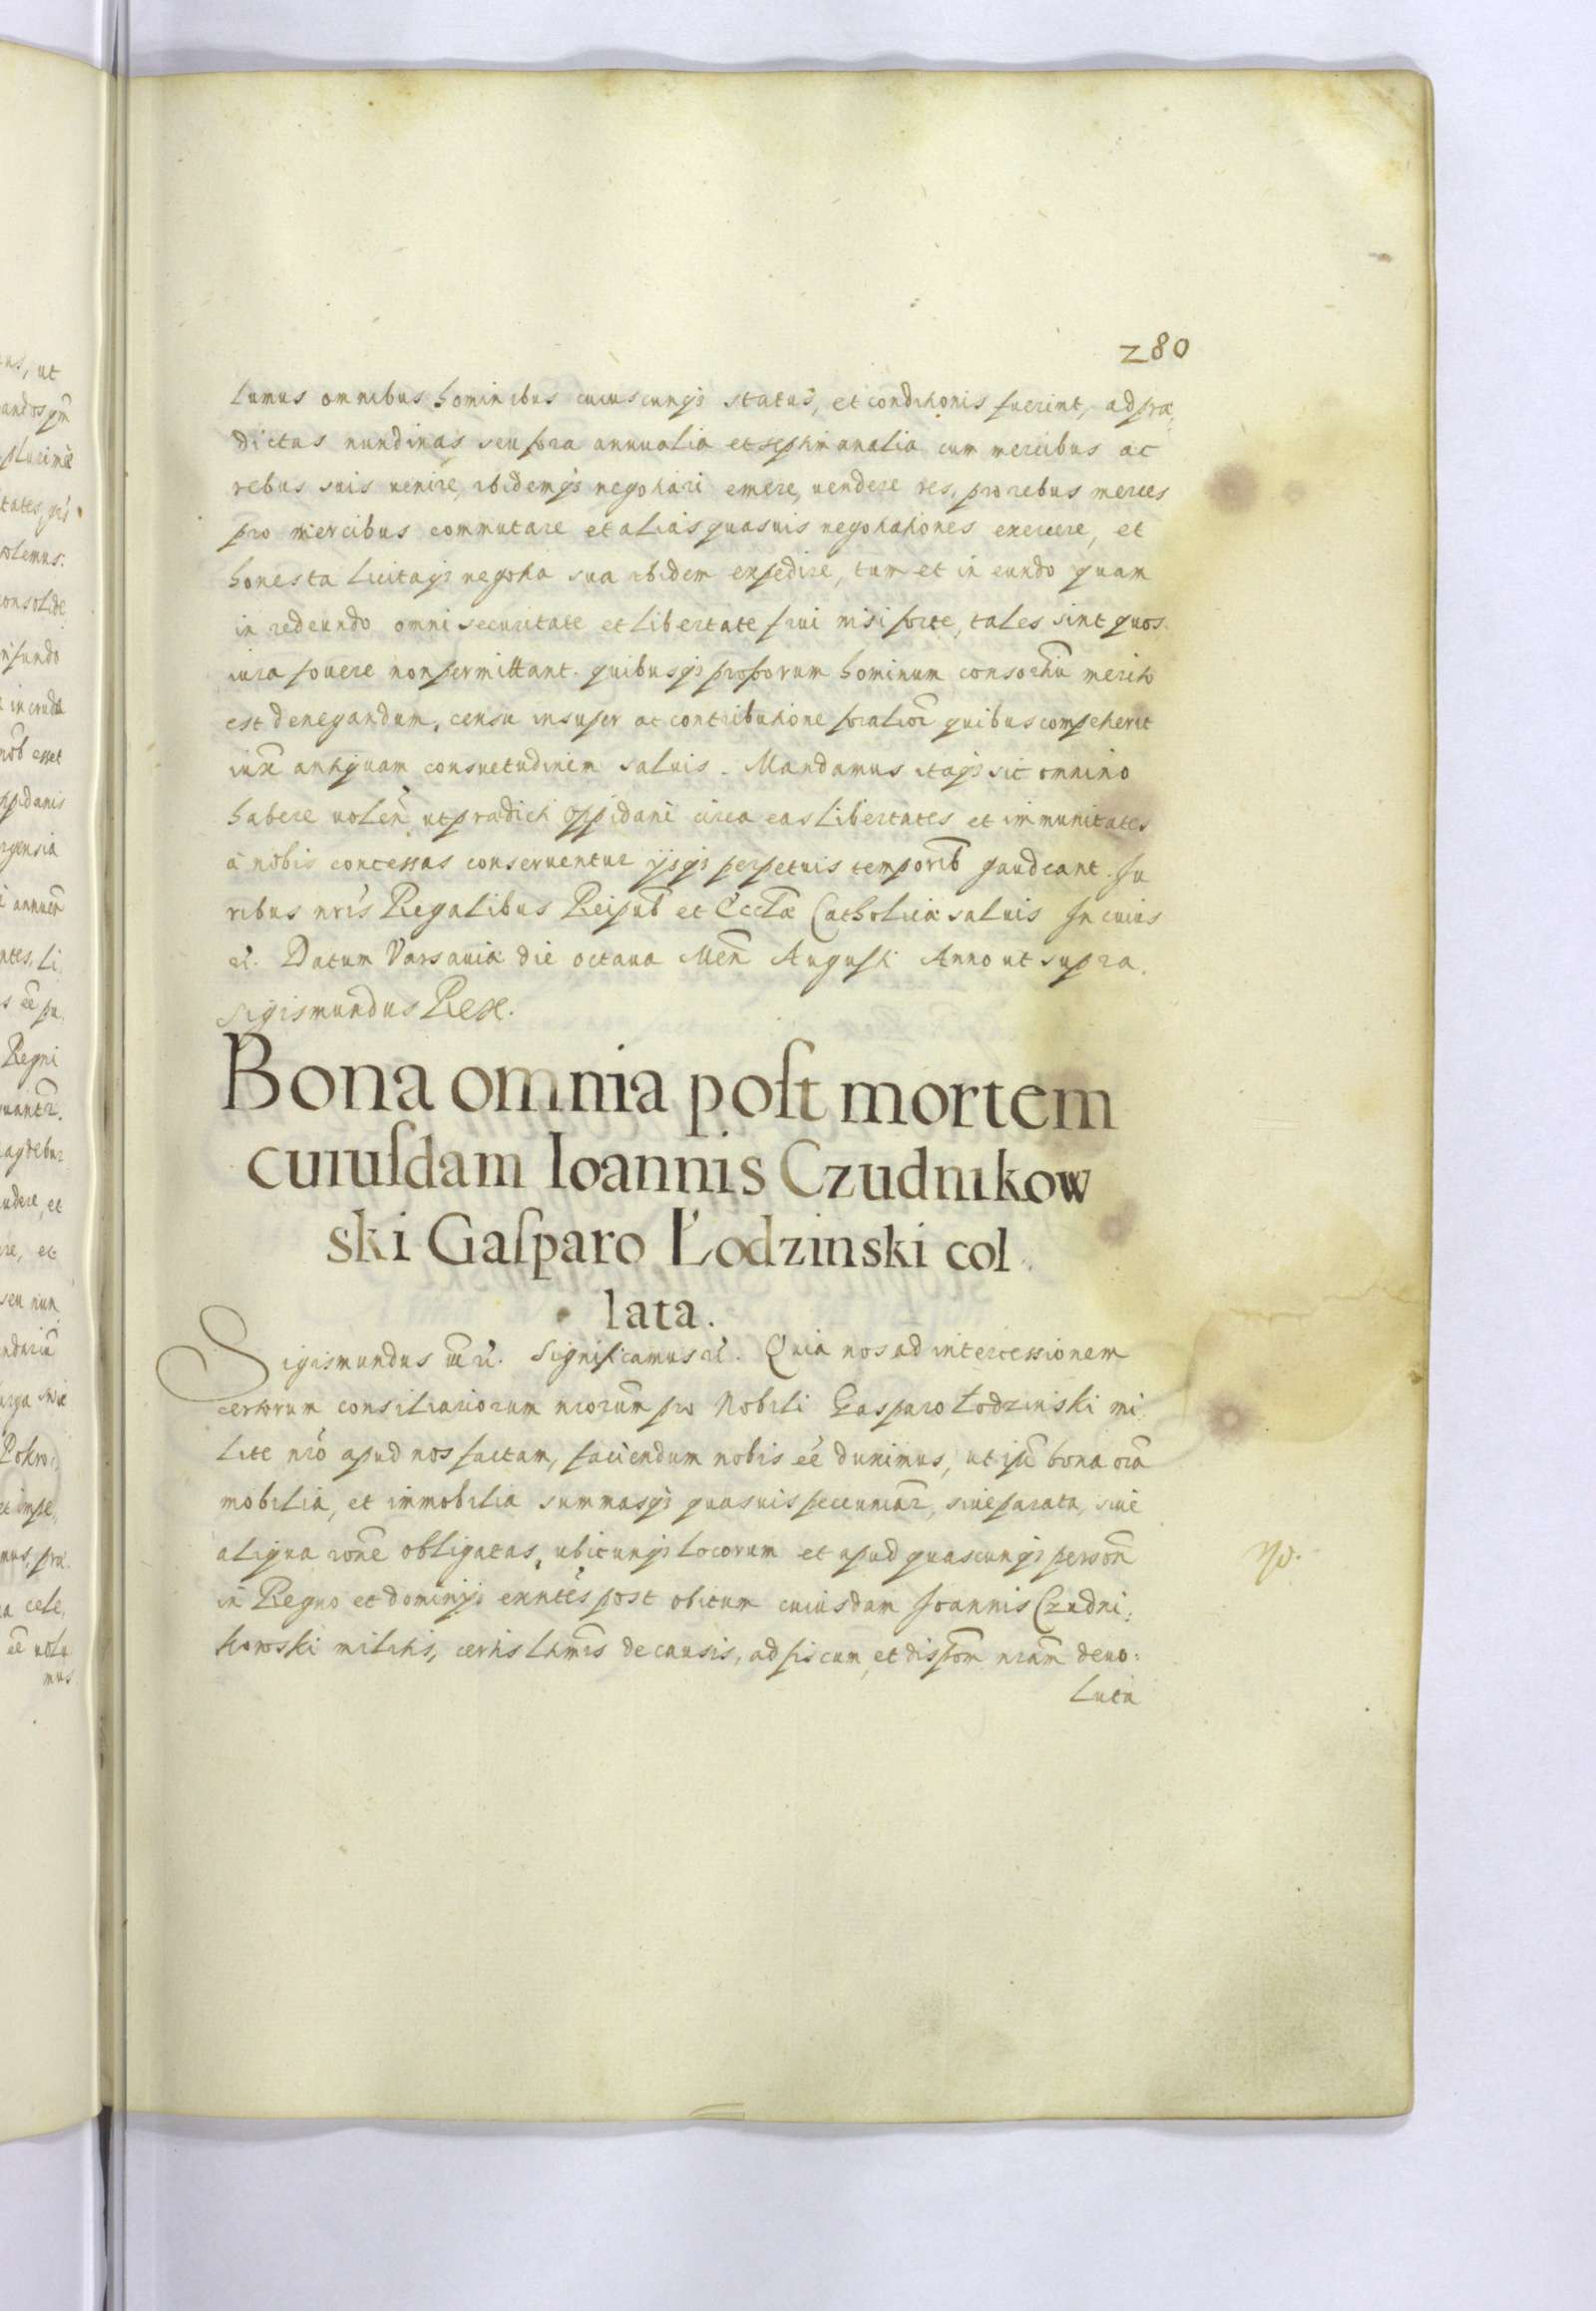 280
lumus omnibus hominibus cuiuscunqȝ status, et conditionis fuerint, ad præ,
dictas nundinas seu fora annualia et septimanalia cum mercibus ac
rebus suis uenire, ibidemqȝ negotiari emere, uendere res, pro rebus merces
pro mercibus commutare et alias quasuis negotiationes exercere, et
honesta licitaqȝ negotia sua ibidem expedire, tum et in eundo quam
in redeundo omni securitate et libertate frui nisi forte, tales sint quos
iura fouere non permittant. quibusqȝ proborum hominum consortiũ merito
est denegandum, censu insuper ac contributione foraliõr quibus competierit
iux̃ antiquam consuetudinem saluis. Mandamus itaqȝ sic omnino
habere uoleñ, ut prædicti oppidani circa eas libertates et immunitates
à nobis concessas conseruentur ijsqȝ perpetuis temporib̃ gaudeant. Iu
ribus nris Regalibus Reipub̃ et Eccl̃æ Catholicæ saluis In cuius
ei. Datum Varsauiæ die octaua Meñ Augusti Anno ut supra.
Sigismundus Rex.
Bona omnia post mortem
cuiusdam Ioannis Czudnikow
ski Gasparo Łodzinski col
lata.
Sigismundus Significamus Quia nos ad intercessionem
certorum consiliariorum nrorum̃ pro Nobili Gasparo Łodzinski mi,
lite nrõ apud nos factam, faciendum nobis ẽe duximus, ut ipĩ bona oĩa
mobilia, et immobilia summasqȝ quasuis pecuniar̃, siue parata, siue
aliqua rõne obligatas, ubicunqȝ locorum et apud quascunqȝ person̄
in Regno et dominijs exñtes post obitum cuiusdam Ioannis Czudni:
kowski militis, certis l̃timis de causis, ad fiscum, et disp̃om nrãm deuo:
luta